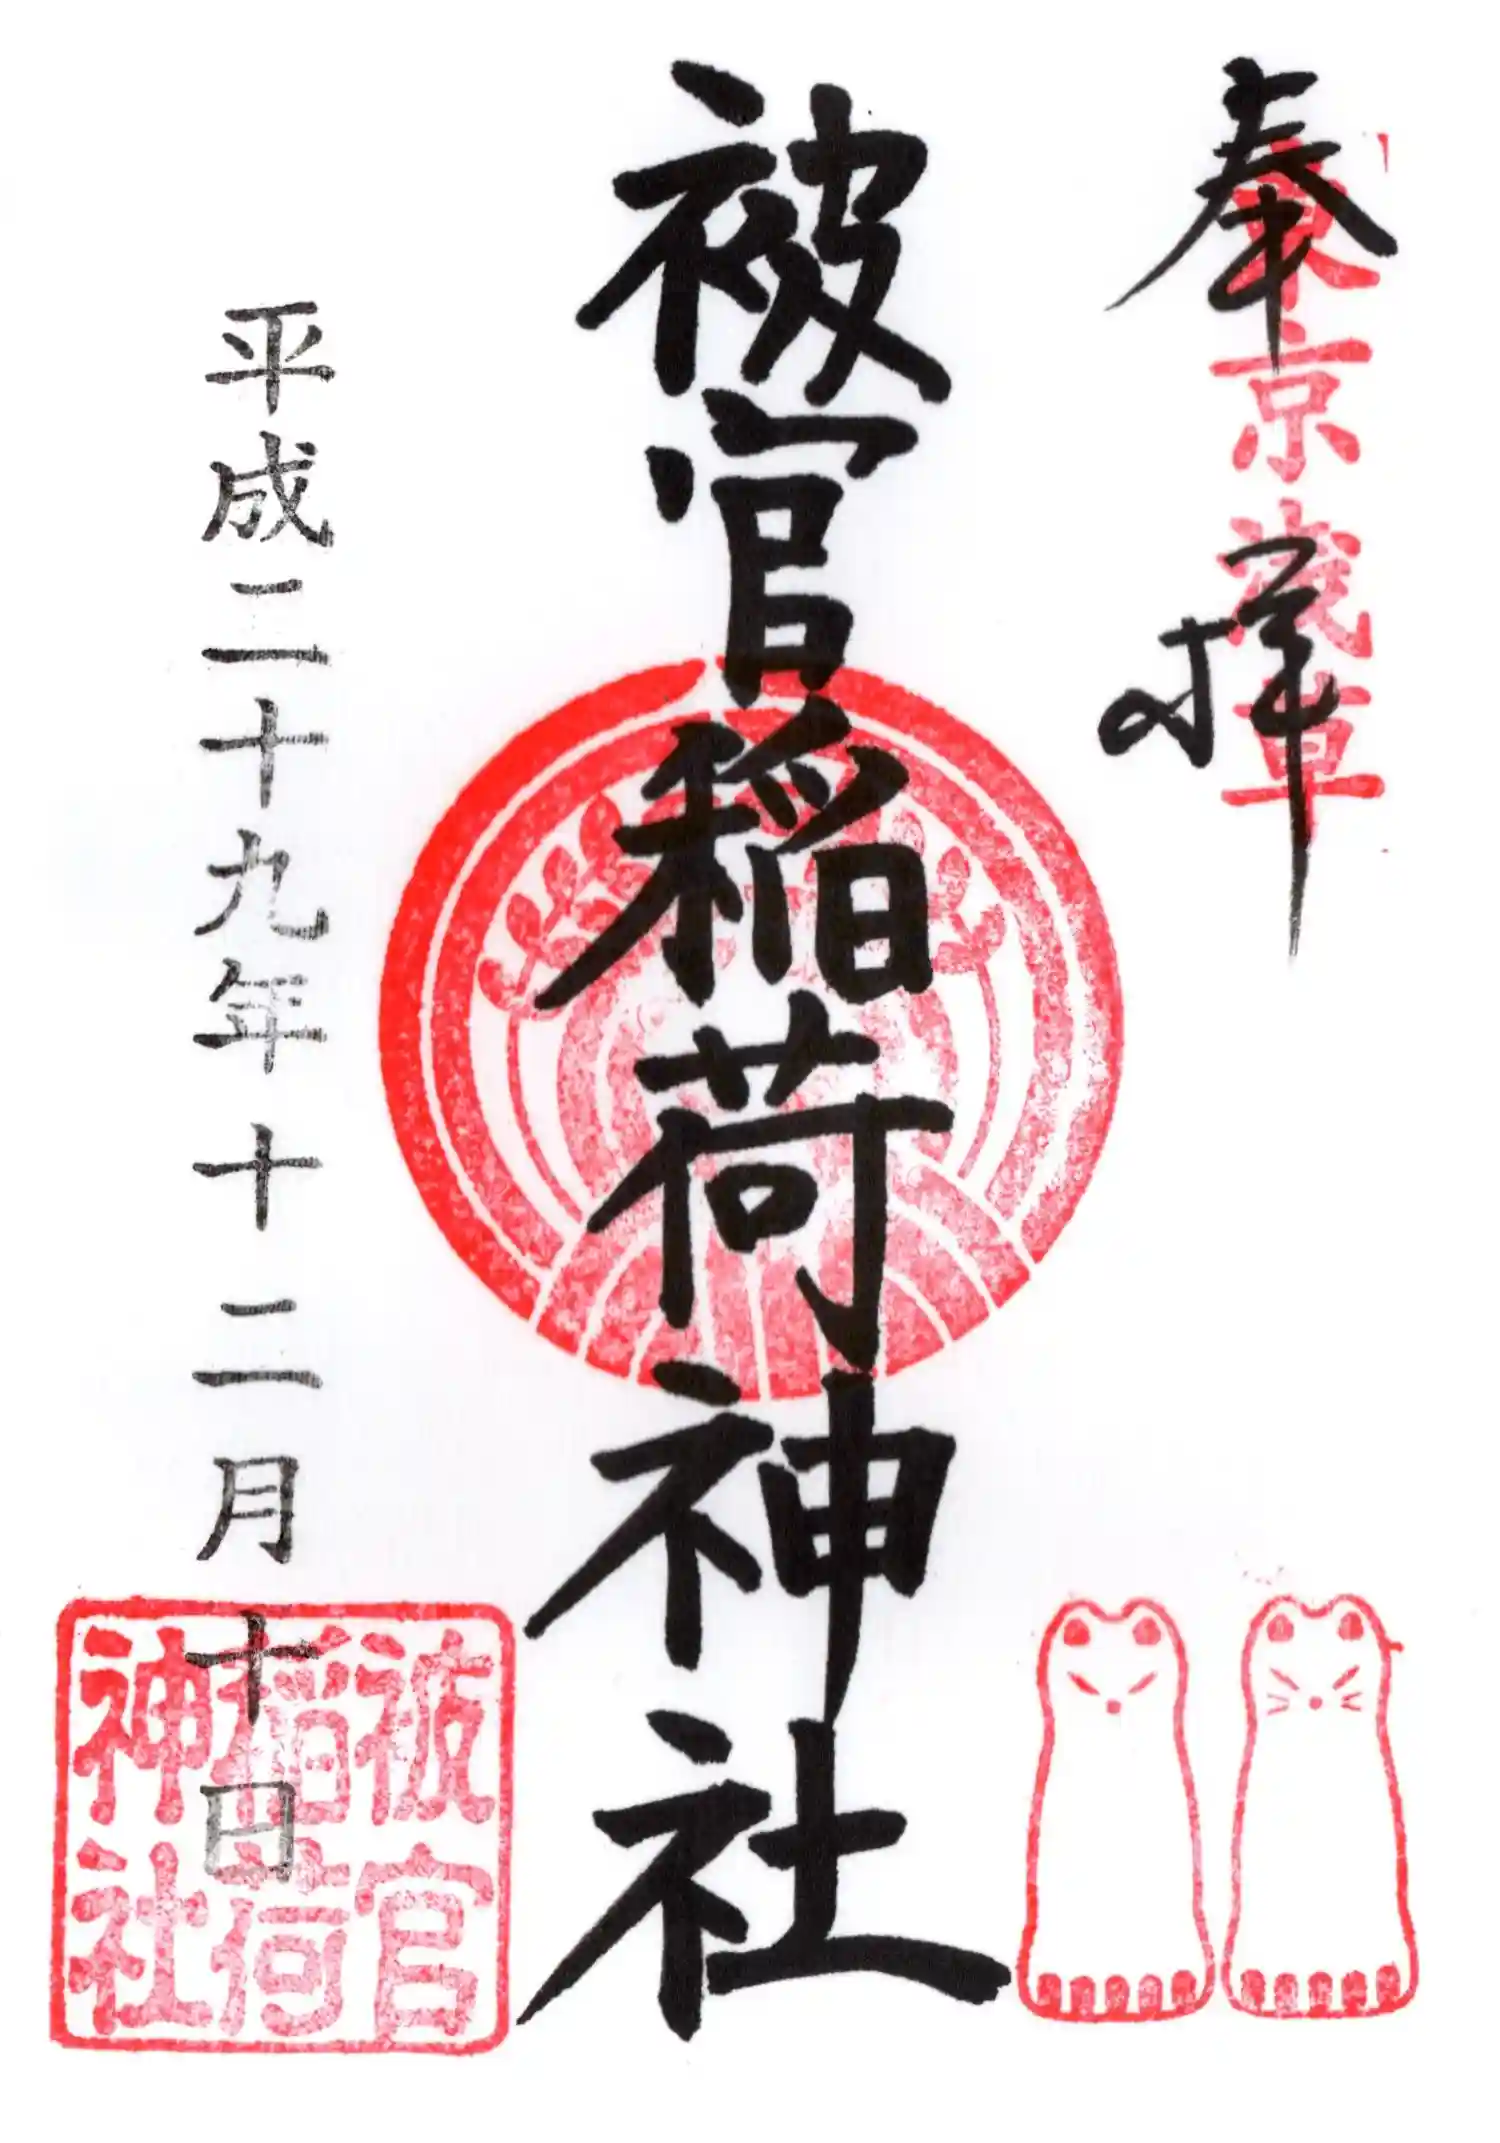 奉拝
東京淺草
被官稲荷神社
平成二十九年十二月十日
被官
稲荷
神社